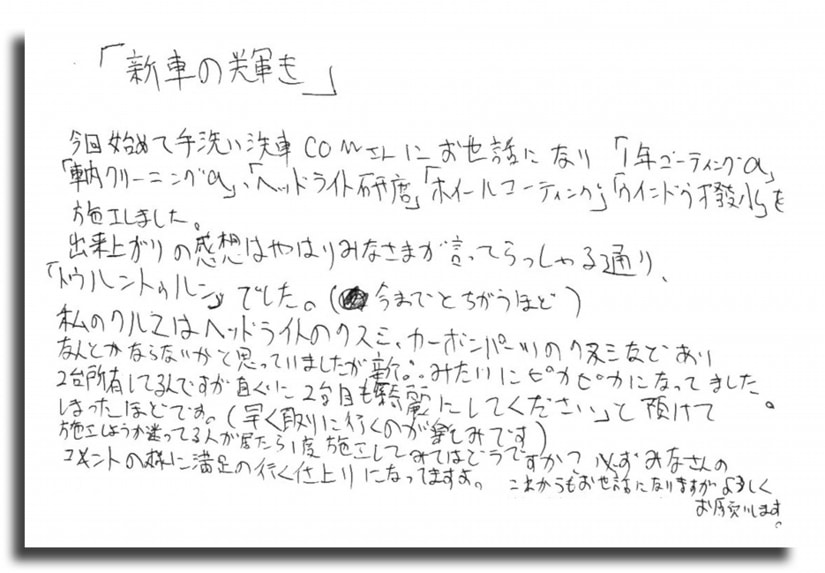 「新車の輝き」
今回始めて手洗い洗車COMさんにお世話になり「1年コーティングα」
「車内クリーニングα」、「ヘッドライト研磨」「ホイールコーティング」「ウインドウ撥水」を
施工しました。
出来上がりの感想はやはりみなさまが言ってらっしゃる通り、
「トゥルントゥルン」でした。(今までとちがうほど)
私のクルマはヘッドライトのクスミ、カーボンパーツのクスミなどあり
なんとかならないかと思っていましたが新品みたいにピカピカになってました。
2台所有してるんですが直ぐに「2台目も綺麗にしてください」と預けて
しまったほどです。(早く取りに行くのが楽しみです)
施工しようか迷ってる人が居たら1度施工してみてはどうですか?必ずみなさんの
コメントの様に満足の行く仕上りになってますよ。これからもお世話になりますがよろしく
お願いします。